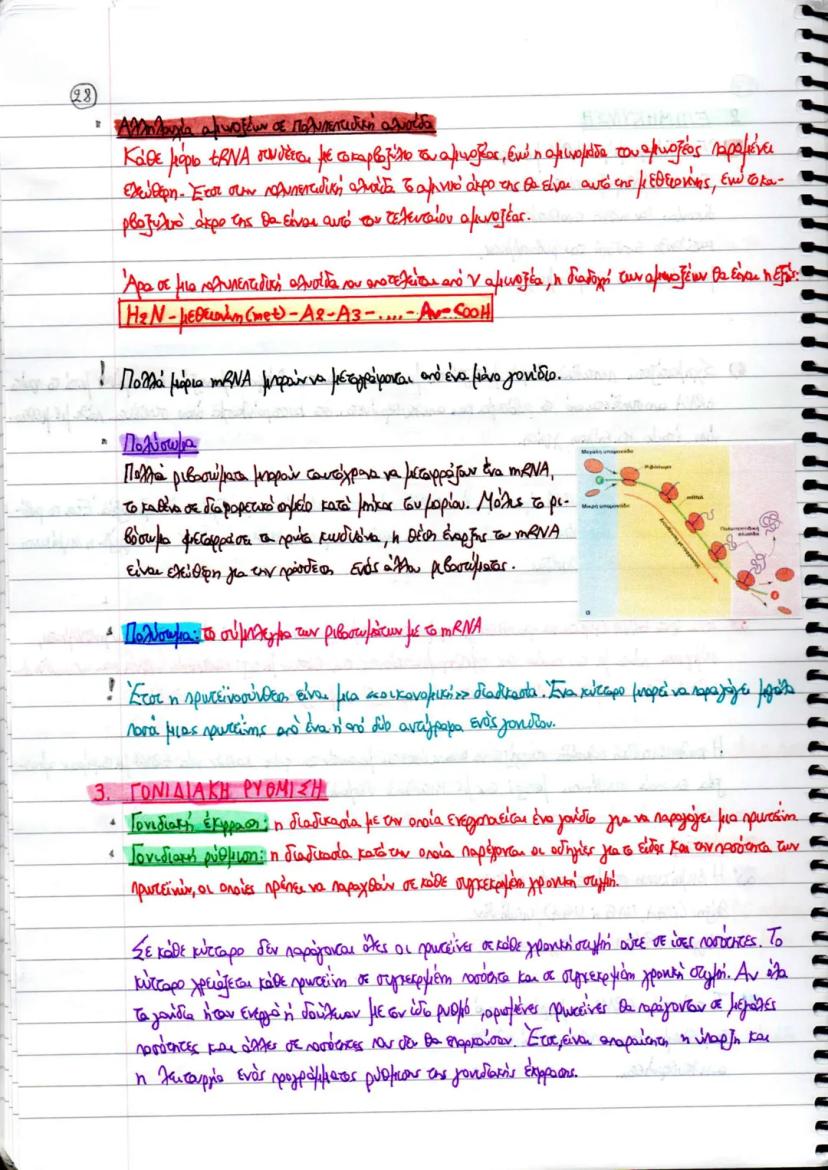 28
Αλληλουχία αμινοξέων σε πολυπεπτιδική αλυσίδα
Κάθε μόριο tRNA συνδέεται με το καρβοξύλιο του αμινοξέος, ενώ η αμινομάδα του αμινοξέος παραμένει
ελεύθερη. Έτσι στην πολυπεπτιδική αλυσίδα το αμινικό άκρο της θα είναι αυτό της μεθειονίνης, ενώ το κα-
ρβοξυλικό άκρο της θα είναι αυτό του τελευταίου αμινοξέος.
Άρα σε μια πολυπεπτιδική αλυσίδα που αποτελείται από ν αμινοξέα, η διαδοχή των αμινοξέων θα είναι η εξής:
H2N - μεθειονίνη (met) - A2 - A3 - .... - Aν - COOH
! Πολλά μόρια mRNA μπορούν να μεταγράφονται από ένα μόνο γονίδιο.
Πολύσωμα
Πολλά ριβοσώματα μπορούν ταυτόχρονα να μεταφράζουν ένα mRNA,
το καθένα σε διαφορετικό σημείο κατά μήκος του μορίου. Μόλις το ρι-
βόσωμα μεταφράσει τα πρώτα κωδικόνια, η θέση έναρξης του mRNA
είναι ελεύθερη για την πρόσδεση ενός άλλου ριβοσώματος.
Μεγάλη υπομονάδα
Ριβόσωμα
mRNA
Μικρή υπομονάδα
Πολυπεπτιδική
αλυσίδα
α
Πολύσωμα: το σύμπλεγμα των ριβοσωμάτων με το mRNA
! Έτσι η πρωτεϊνοσύνθεση είναι μια «οικονομική» διαδικασία. Ένα κύτταρο μπορεί να παραγάγει μεγάλα
ποσά μιας πρωτεΐνης από ένα ή από δύο αντίγραφα ενός γονιδίου.
3. ΓΟΝΙΔΙΑΚΗ ΡΥΘΜΙΣΗ
Γονιδιακή έκφραση: η διαδικασία με την οποία ενεργοποιείται ένα γονίδιο για να παραγάγει μια πρωτεΐνη
Γονιδιακή ρύθμιση: η διαδικασία κατά την οποία παρέχονται οι οδηγίες για το είδος και την ποσότητα των
πρωτεϊνών, οι οποίες πρέπει να παραχθούν σε κάθε συγκεκριμένη χρονική στιγμή.
Σε κάθε κύτταρο δεν παράγονται όλες οι πρωτεΐνες σε κάθε χρονική στιγμή ούτε σε ίσες ποσότητες. Το
κύτταρο χρειάζεται κάθε πρωτεΐνη σε συγκεκριμένη ποσότητα και σε συγκεκριμένη χρονική στιγμή. Αν όλα
τα γονίδια ήταν ενεργά ή δούλευαν με τον ίδιο ρυθμό, ορισμένες πρωτεΐνες θα παράγονταν σε μεγάλες
ποσότητες και άλλες σε ποσότητες που δεν θα επαρκούσαν. Έτσι, είναι απαραίτητη η ύπαρξη και
η λειτουργία ενός προγράμματος ρύθμισης της γονιδιακής έκφρασης.